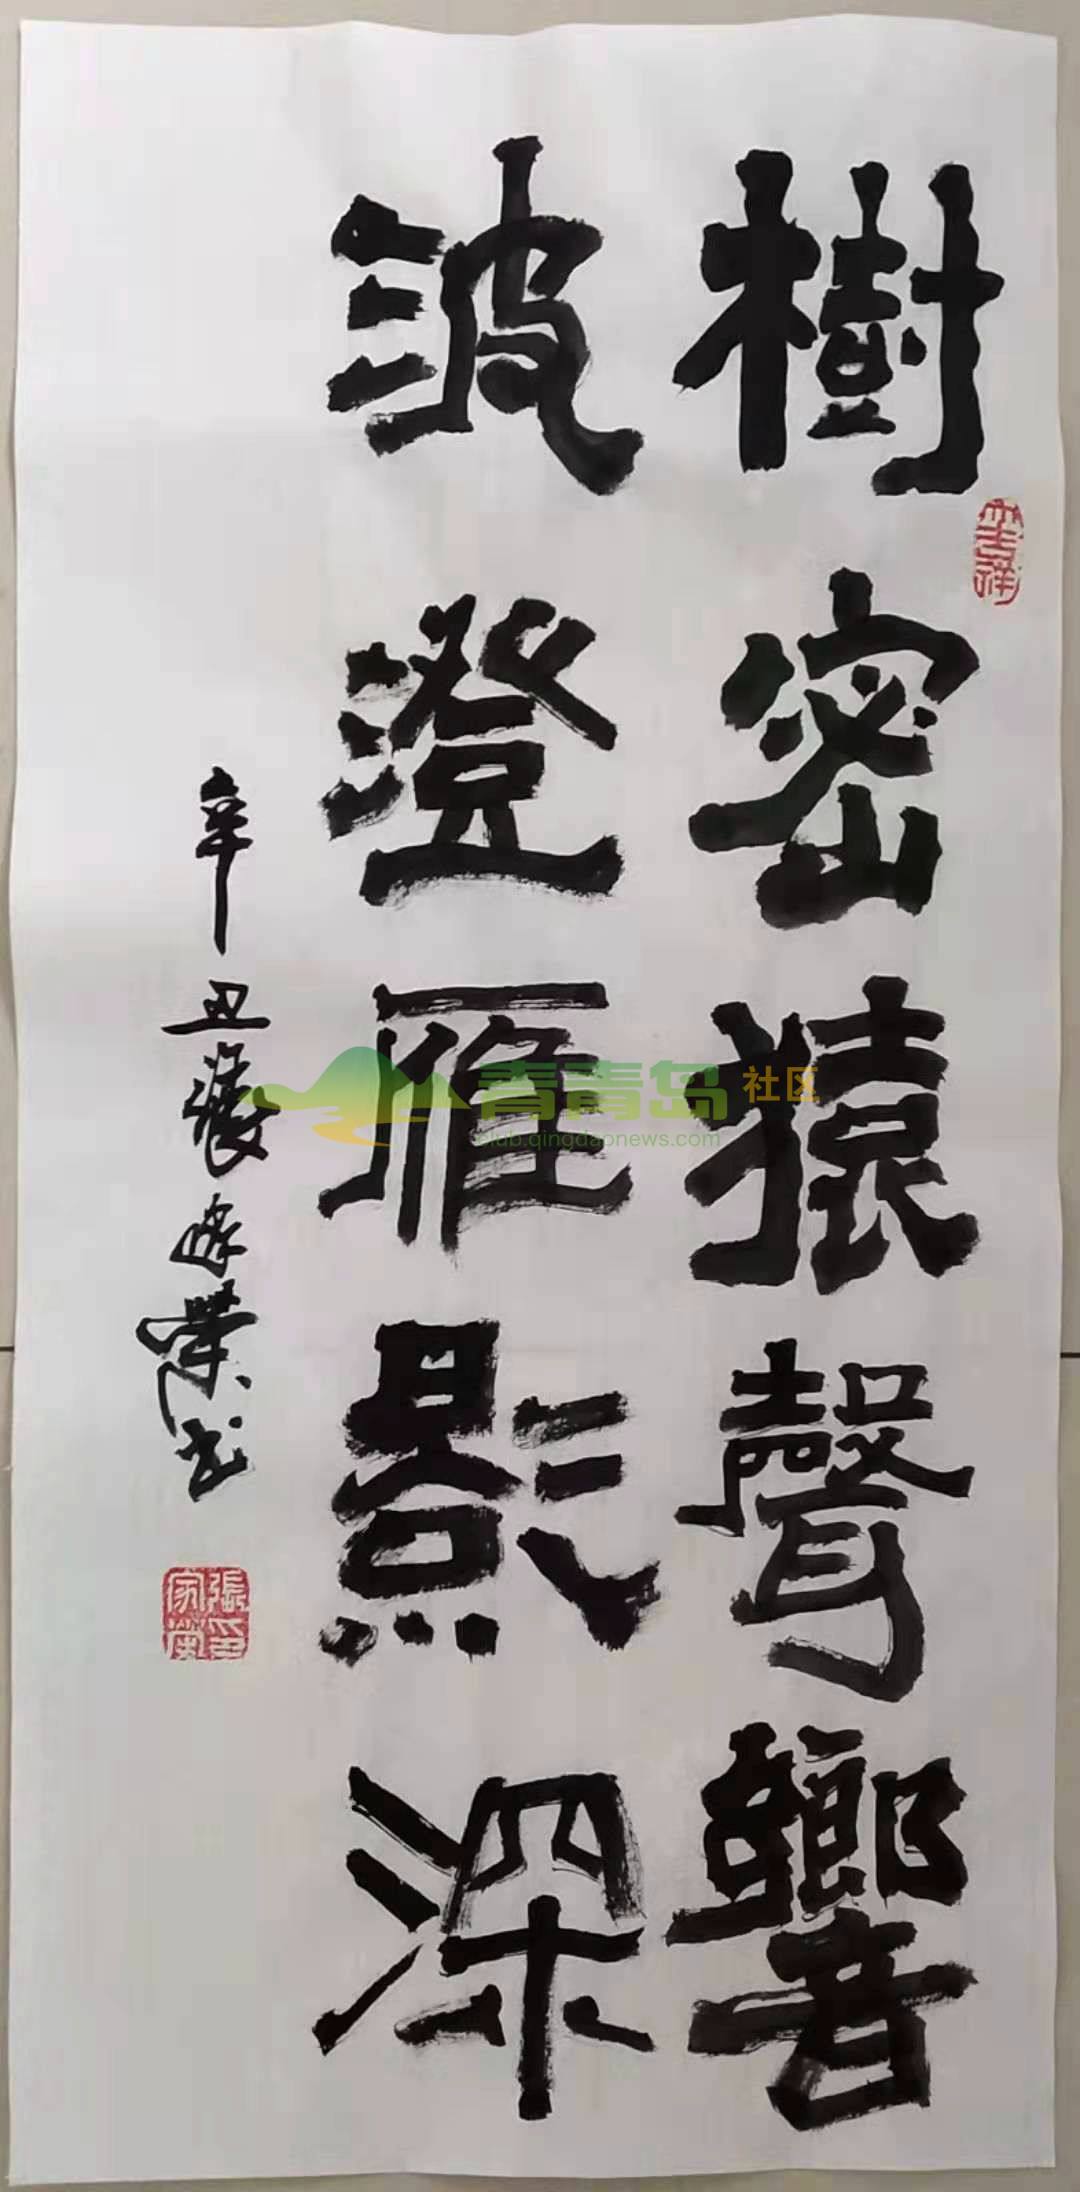 樹密猿聲響
波澄雁影深
辛丑張家榮书
張印家榮
青青岛社区
club.qingdaonews.com